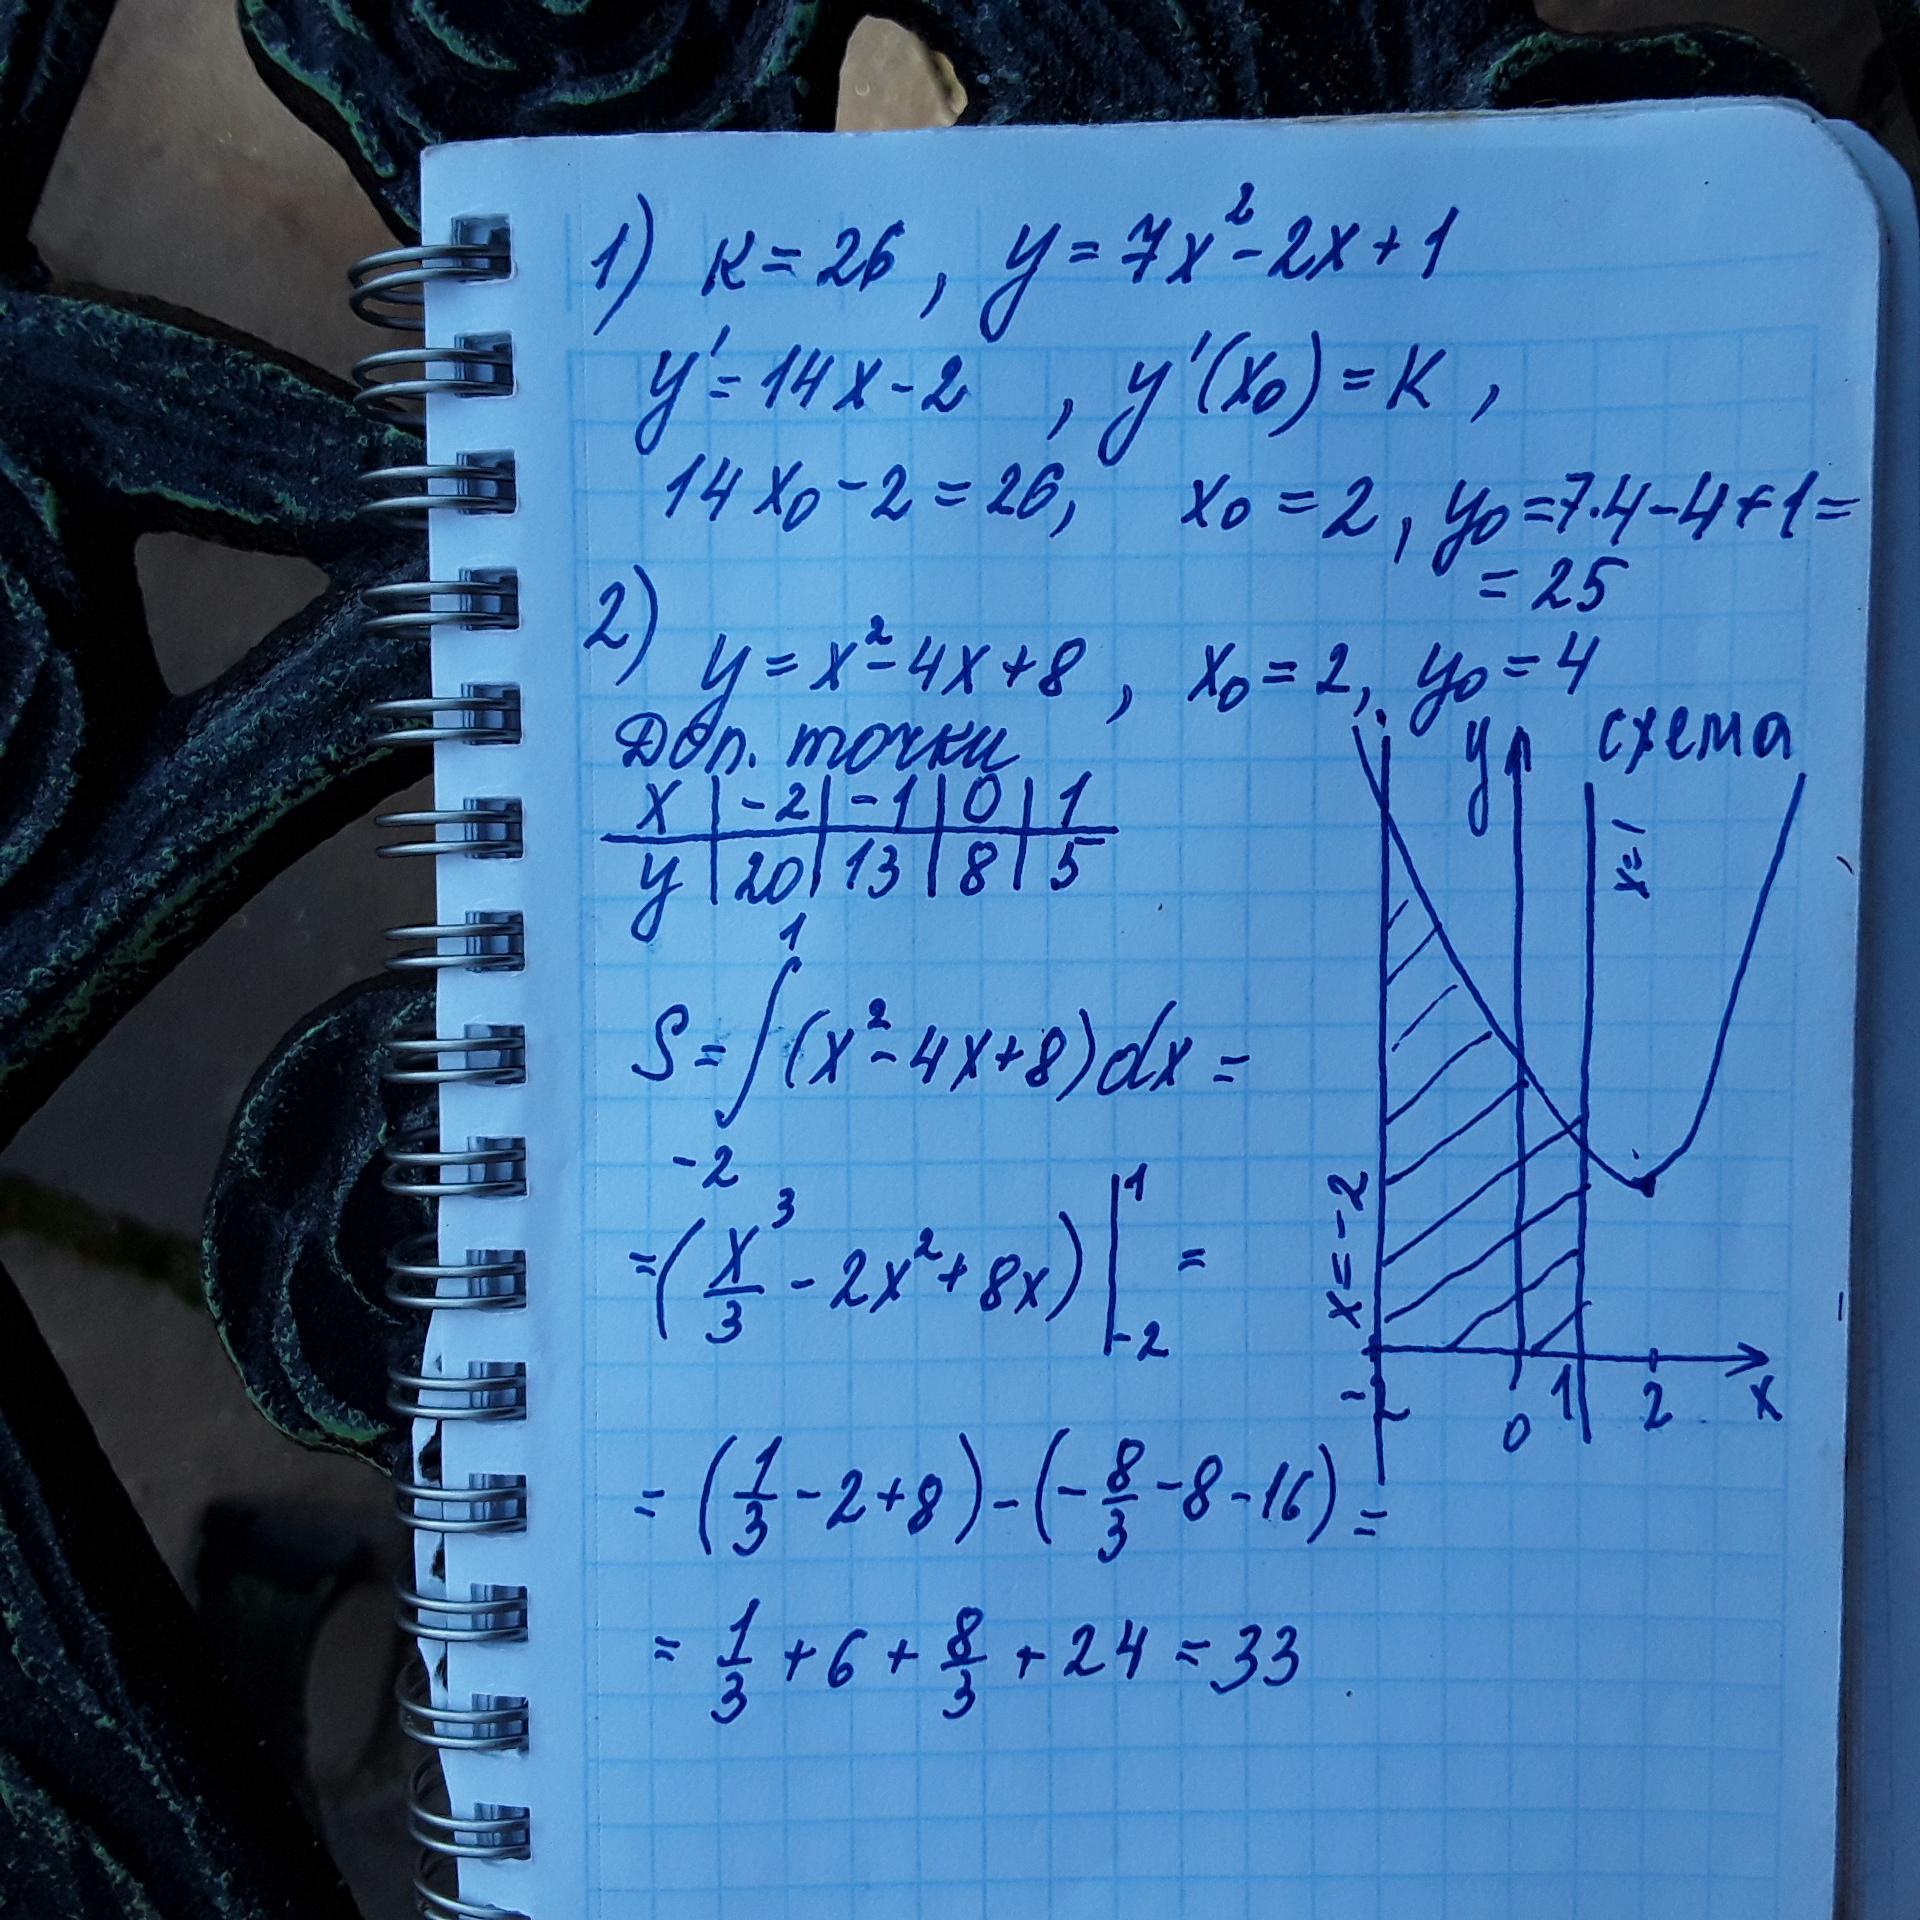 1) к = 26, y = 7x² - 2x + 1
y' = 14x - 2, y'(x₀) = к,
14x₀ - 2 = 26, x₀ = 2, y₀ = 7·4 - 4 + 1 =
= 25
2) y = x² - 4x + 8, x₀ = 2, y₀ = 4
Доп. точки
x | -2 | -1 | 0 | 1
y | 20 | 13 | 8 | 5
S = ∫₋₂¹ (x² - 4x + 8) dx =
= (x³/3 - 2x² + 8x) |₋₂¹ =
= (1/3 - 2 + 8) - (-8/3 - 8 - 16) =
= 1/3 + 6 + 8/3 + 24 = 33
схема
y
x = 1
x = -2
-2 0 1 2 x